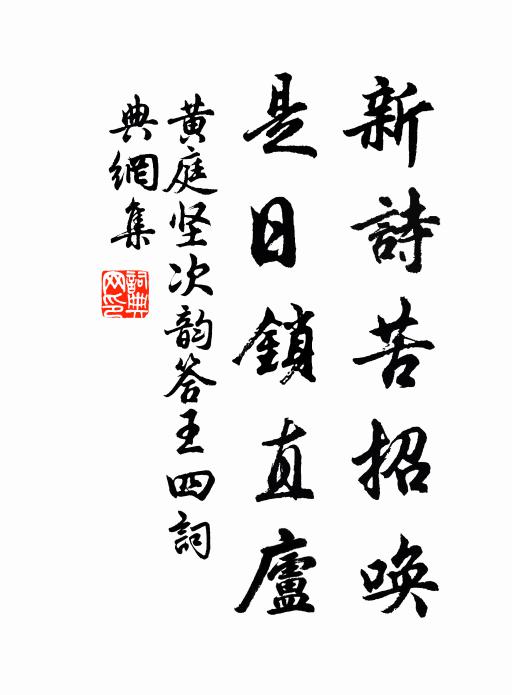 新詩苦招喚
是日鎖直廬
黄庭坚次韵答王四詞
典網集
詞典網印